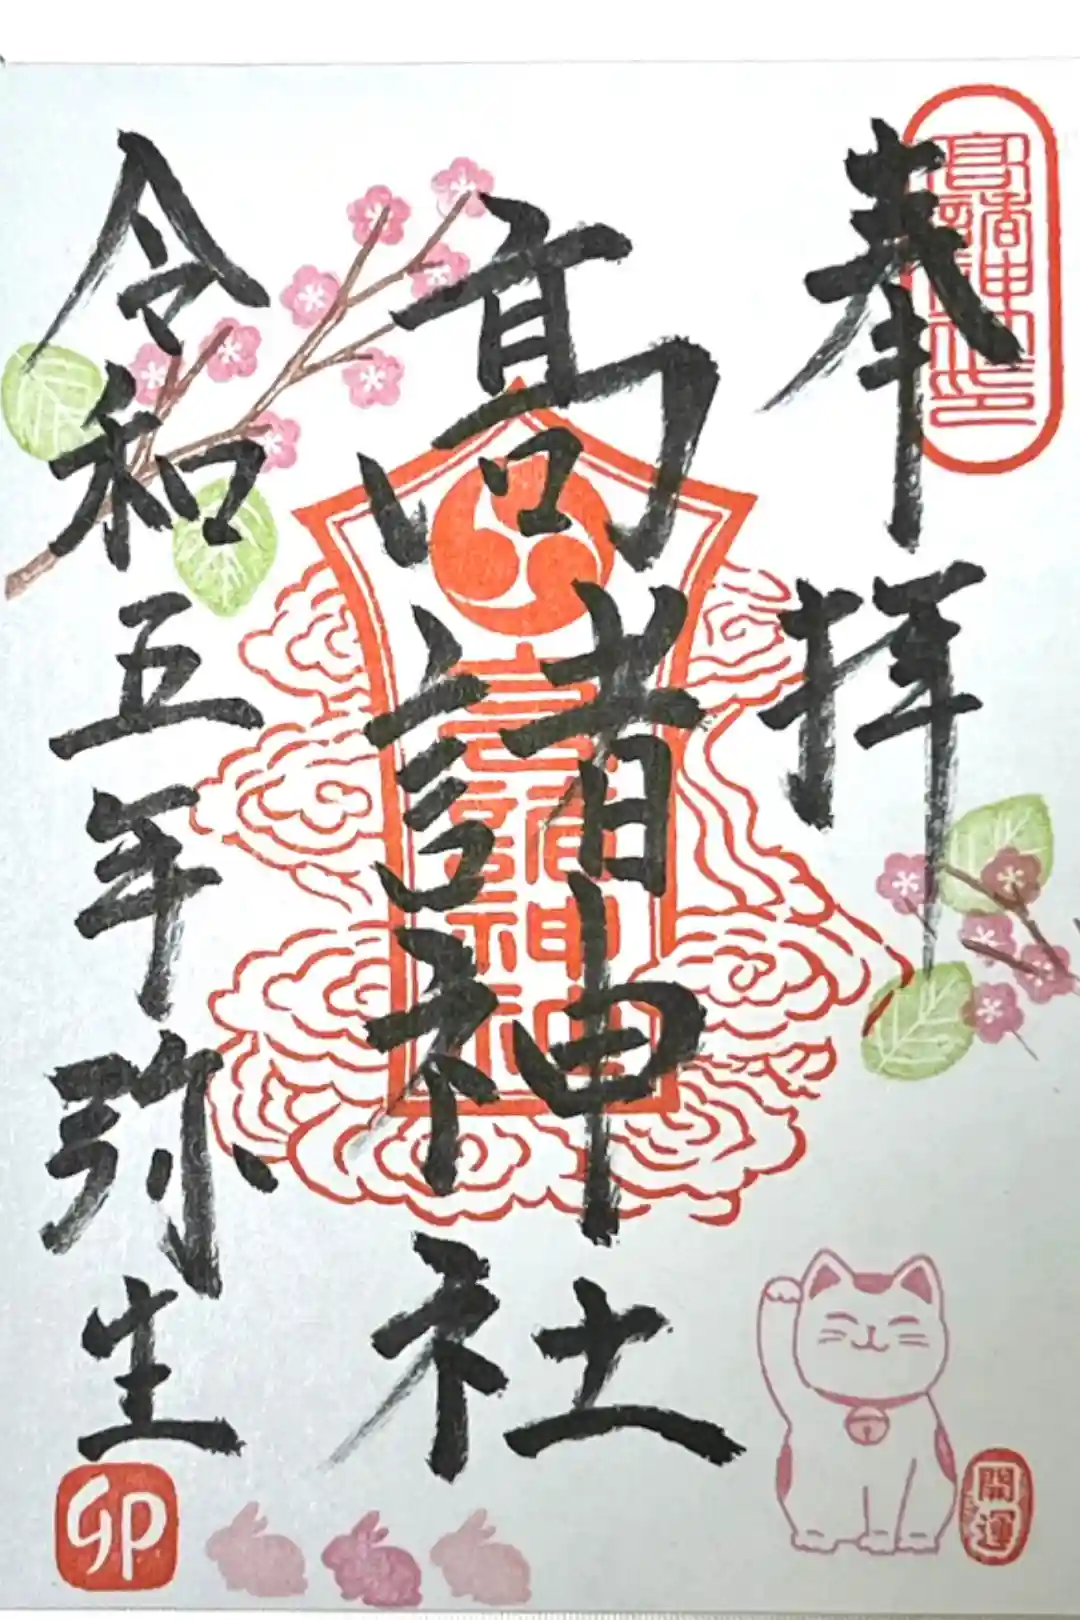 奉拝
高諸神社
令和五年弥生
高諸神社印
高諸神社
開運
卯